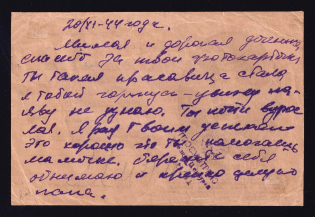 20/VI-44 года.
Милая и дорогая доченька
спасибо за твои фотокарточки
ты такая красавица стала
я тобой горжусь - увижу на-
яву не узнаю. Ты почти взрос
лая. Я рад твоим успехам
это хорошо что ты помогаешь
мамочке. Береги себя
обнимаю и крепко целую
папа.